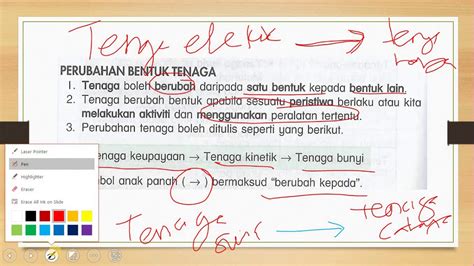 Tenga elektik → tenga haba
PERUBAHAN BENTUK TENAGA
1. Tenaga boleh berubah daripada satu bentuk kepada bentuk lain.
2. Tenaga berubah bentuk apabila sesuatu peristiwa berlaku atau kita
melakukan aktiviti dan menggunakan peralatan tertentu.
3. Perubahan tenaga boleh ditulis seperti yang berikut.
Laser Pointer
Pen
Highlighter
Eraser
Erase All Ink on Slide
enaga keupayaan → Tenaga kinetik → Tenaga bunyi
bol anak panah ( → ) bermaksud "berubah kepada".
Tenaga → tenaga cahaya